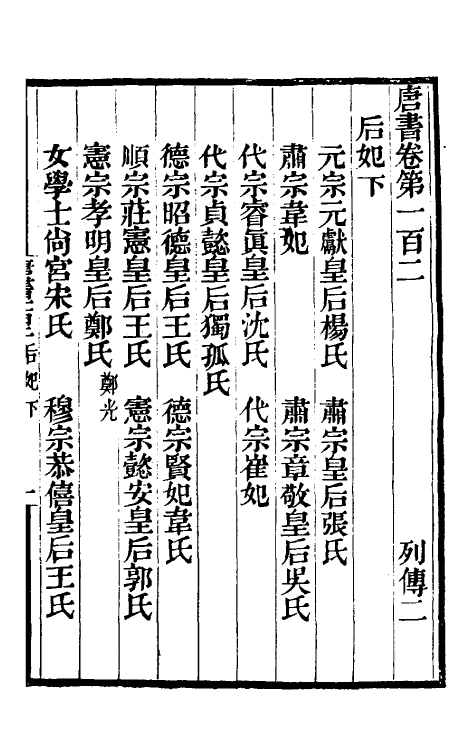 唐書卷第一百二 列傳二
后妃下
元宗元獻皇后楊氏 肅宗皇后張氏
肅宗韋妃 肅宗章敬皇后吳氏
代宗睿眞皇后沈氏 代宗崔妃
代宗貞懿皇后獨孤氏
德宗昭德皇后王氏 德宗賢妃韋氏
順宗莊憲皇后王氏 憲宗懿安皇后郭氏
憲宗孝明皇后鄭氏 鄭光
女學士尙宮宋氏 穆宗恭僖皇后王氏
后妃下 一